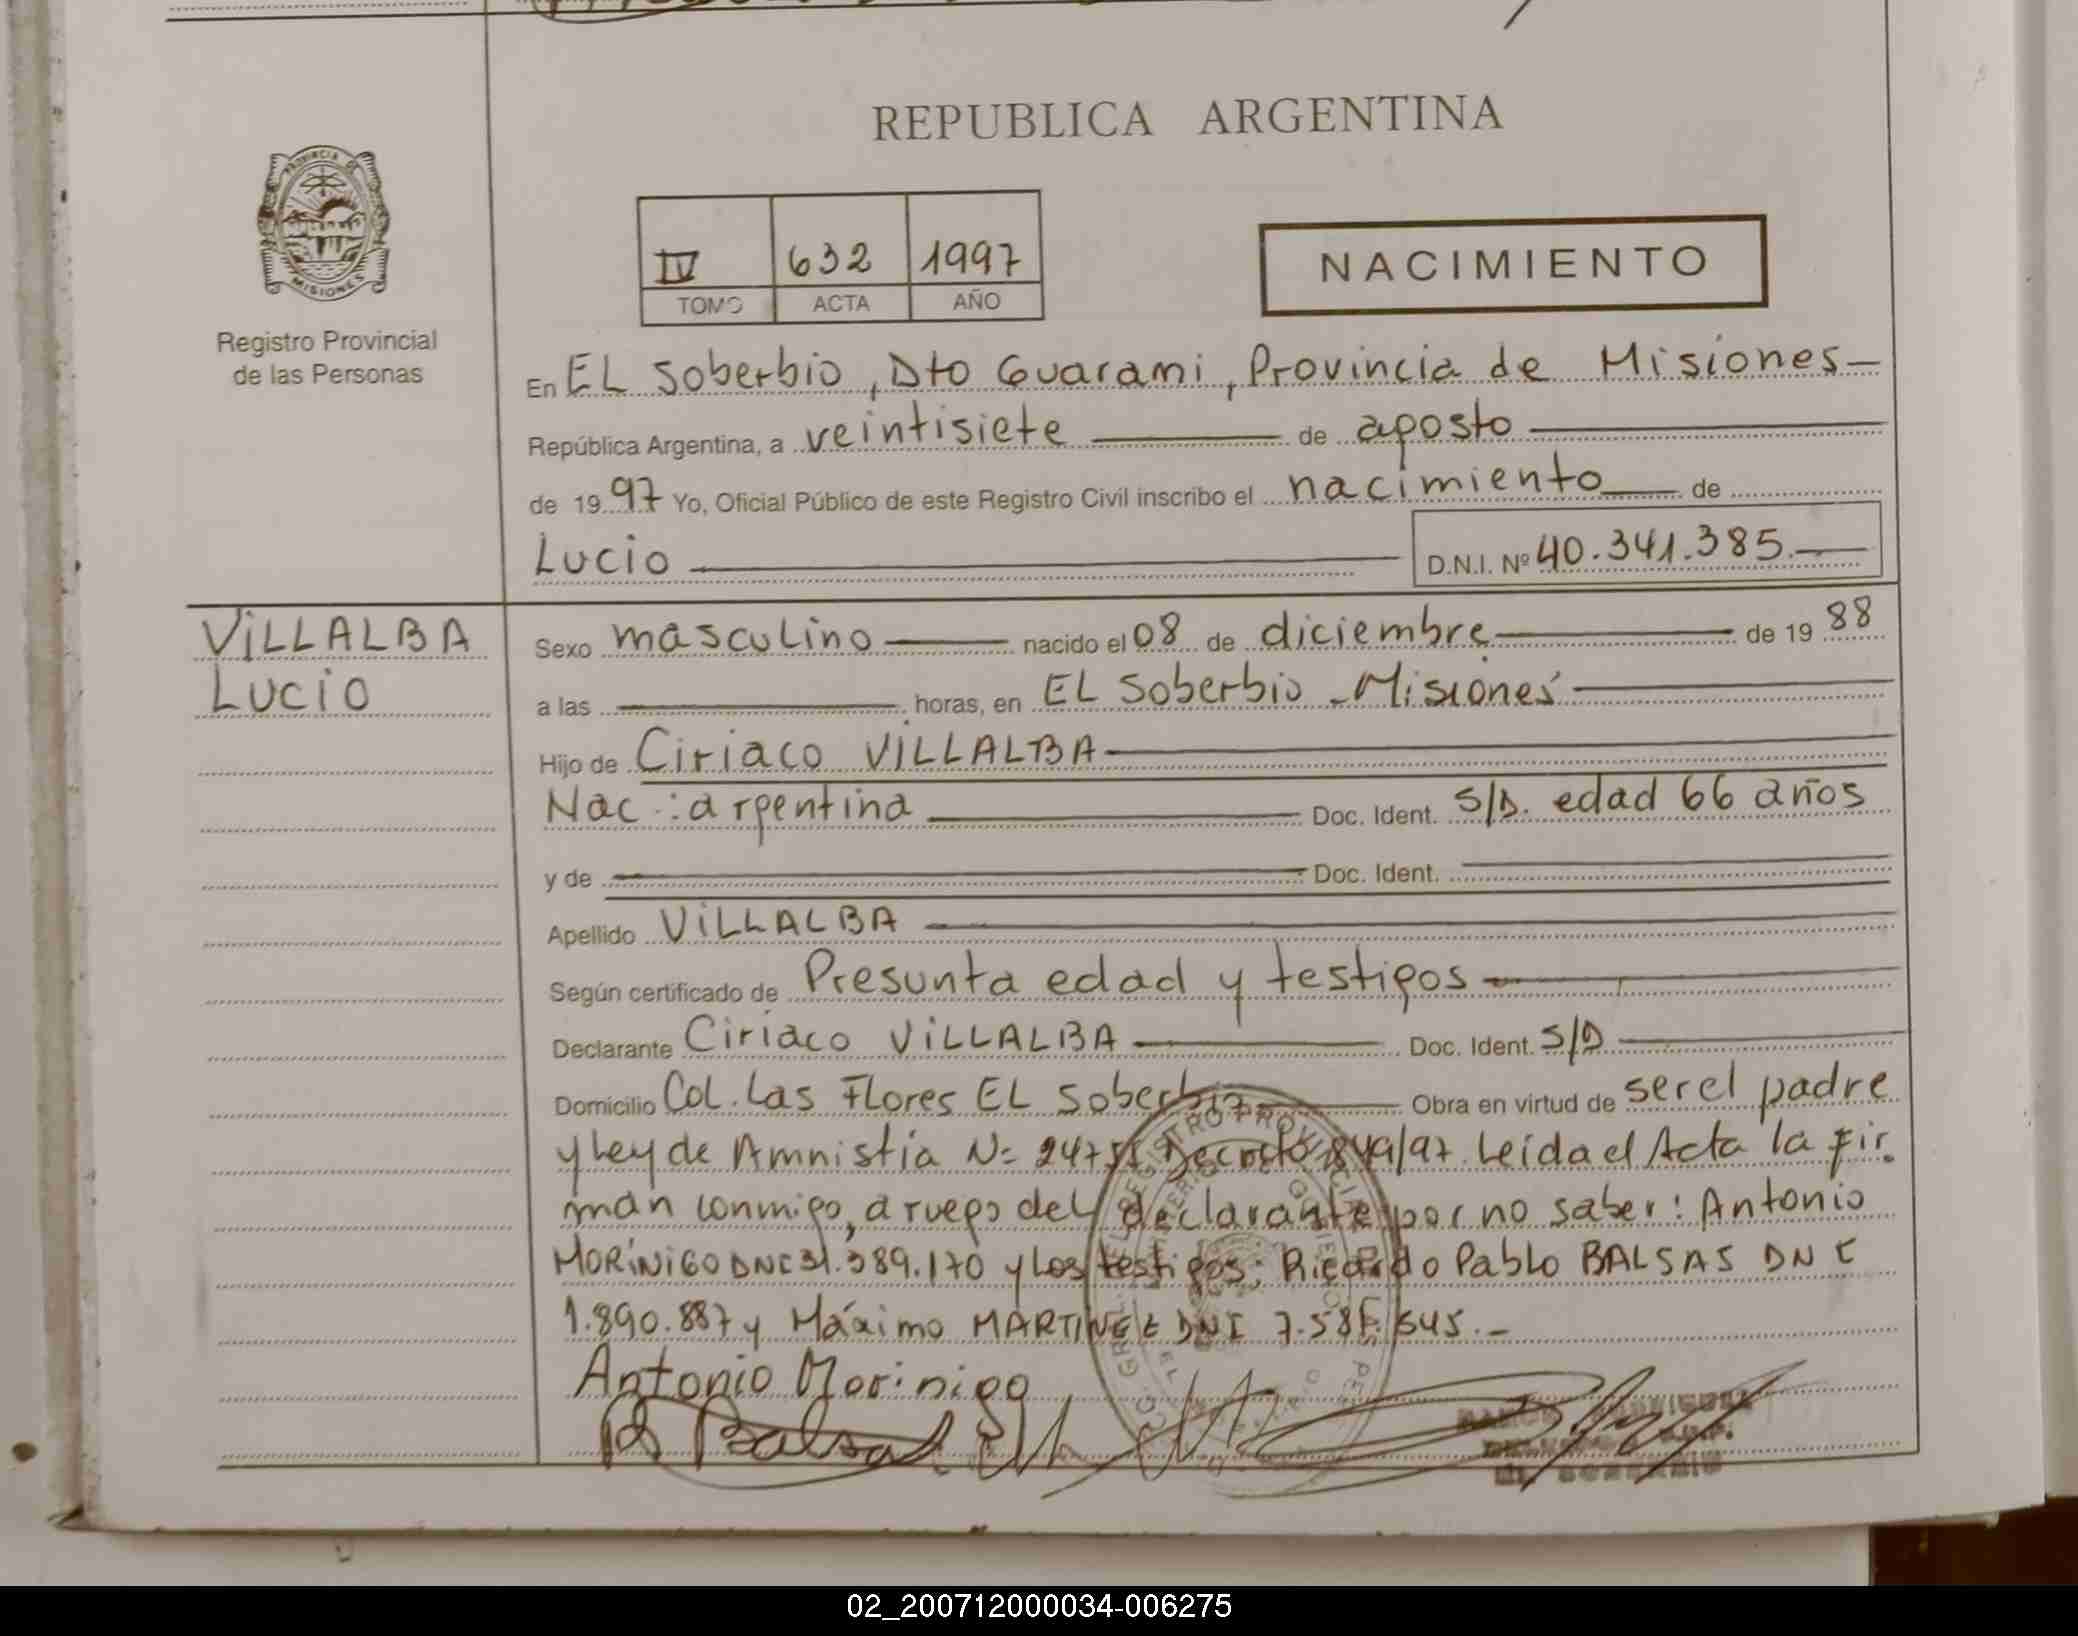 REPUBLICA ARGENTINA
PROVINCIA DE
MISIONES
Registro Provincial
de las Personas
IV 632 1997
TOMO ACTA AÑO
NACIMIENTO
En EL Soberbio, Dto Guarani, Provincia de Misiones
República Argentina, a veintisiete de agosto
de 1997 Yo, Oficial Público de este Registro Civil inscribo el nacimiento de
Lucio D.N.I. Nº 40.341.385.
VILLALBA
Lucio
Sexo masculino nacido el 08 de diciembre de 1988
a las horas, en EL Soberbio - Misiones
Hijo de Ciriaco VILLALBA
Nac.: argentina Doc. Ident. S/D. edad 66 años
y de Doc. Ident.
Apellido VILLALBA
Según certificado de Presunta edad y testigos
Declarante Ciriaco VILLALBA Doc. Ident. S/D
Domicilio Col. Las Flores EL Soberbio Obra en virtud de ser el padre
y Ley de Amnistia Nº Decreto Leida el Acta la fir
man conmigo, a ruego del declarante por no saber: Antonio
MORÍNIGO y Los testigos: Ricardo Pablo BALSAS DNI
1.890.887 y Máximo MARTINEZ DNI
Antonio Morinigo
R Balsas
02_200712000034-006275